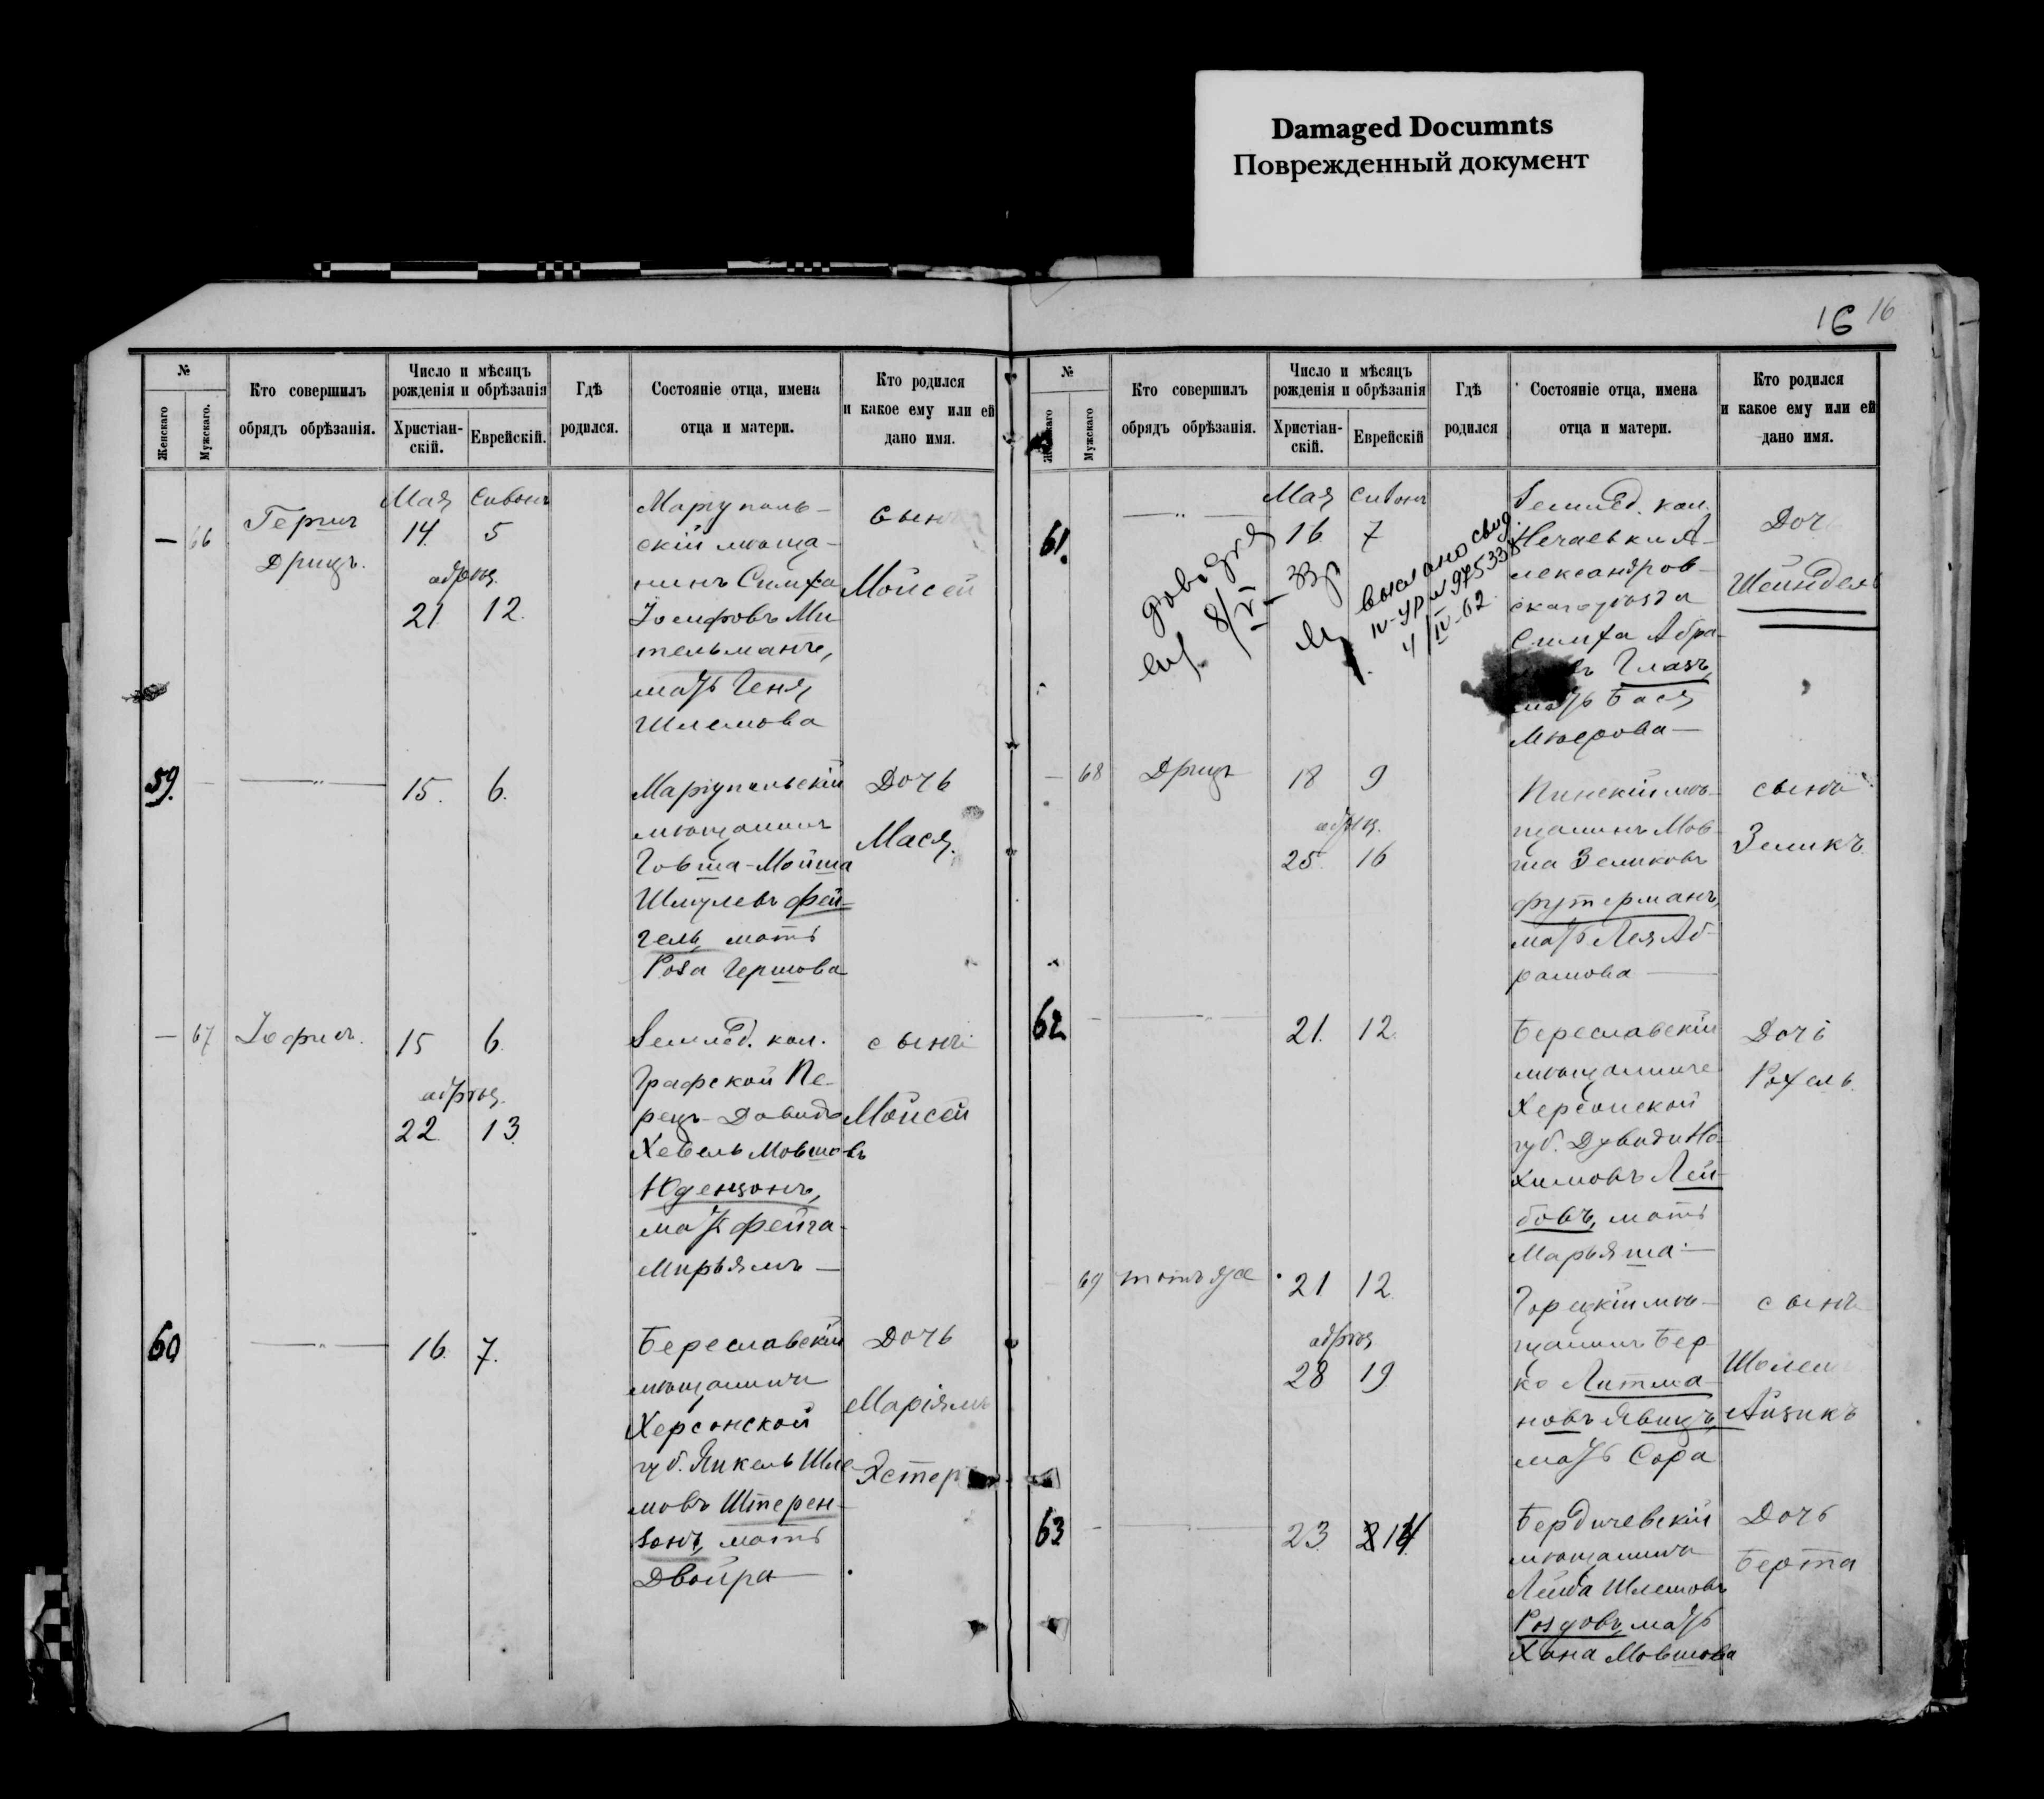 Damaged Documnts
Поврежденный документ
16 16
№
Женскаго
Мужскаго.
Кто совершилъ
обрядъ обрѣзанія.
Число и мѣсяцъ
рожденія и обрѣзанія
Христіан-
скій.
Еврейскій.
Гдѣ
родился.
Состояніе отца, имена
отца и матери.
Кто родился
и какое ему или ей
дано имя.
— 66
Гершъ
Дрицъ.
Мая Сивонъ
14. 5
обрѣз.
21 12.
Маріуполь-
скій мѣща-
нинъ Симха
Іосифовъ Ми-
тельманъ,
мать Геня
Шлемова
сынъ
Мойсей
59. —
15. 6.
Маріупольскій
мѣщанинъ
Говша-Мойша
Шмулевъ Фей-
гель, мать
Роза Гершова
Дочь
Мася.
— 67
Іофисъ.
15 6.
обрѣз.
22. 13.
Землед. кол.
Графской Пе-
рецъ-Довидъ
Хевель Мовшовъ
Юденцонъ,
мать Фейга-
Мирьямъ —
сынъ
Мойсей
60
16. 7.
Береславскій
мѣщанинъ
Херсонской
губ. Янкель Шле-
мовъ Штерен-
зонъ, мать
Двойра —
Дочь
Маріямъ
Эстер
№
Женскаго
Мужскаго
Кто совершилъ
обрядъ обрѣзанія.
Число и мѣсяцъ
рожденія и обрѣзанія
Христіан-
скій.
Еврейскій
Гдѣ
родился
Состояніе отца, имена
отца и матери.
Кто родился
и какое ему или ей
дано имя.
61.
Мая Сивонъ
16. 7
8/V-33г
выслано свид.
IV-УР № 975338.
4/IV-62
Землед. кол.
Нечаевки А-
лександров-
скаго уѣзда
Симха Абра-
въ Глазъ,
мать Бася
Мѣерова —
Доч
Шейндель
— 68
Дрицъ
18 9
обрѣз.
25. 16
Пинскій мѣ-
щанинъ Мов-
ша Зеликовъ
Футерманъ,
мать Лея Аб-
рамова —
сынъ
Зеликъ
62 —
21. 12.
Береславскій
мѣщанинъ
Херсонской
губ. Дувидъ Но-
химовъ Лей-
бовъ, мать
Марьяша —
Дочь
Рохель
69
тотъ же
21 12.
обрѣз.
28 19
Горецкій мѣ-
щанинъ Бер-
ко Литма-
новъ Явицъ,
мать Сора
сынъ
Шолем
Айзикъ
63 —
23. 14
Бердичевскій
мѣщанинъ
Лейба Шлемовъ
Розловъ, мать
Хана Мовшова
Дочь
Берта